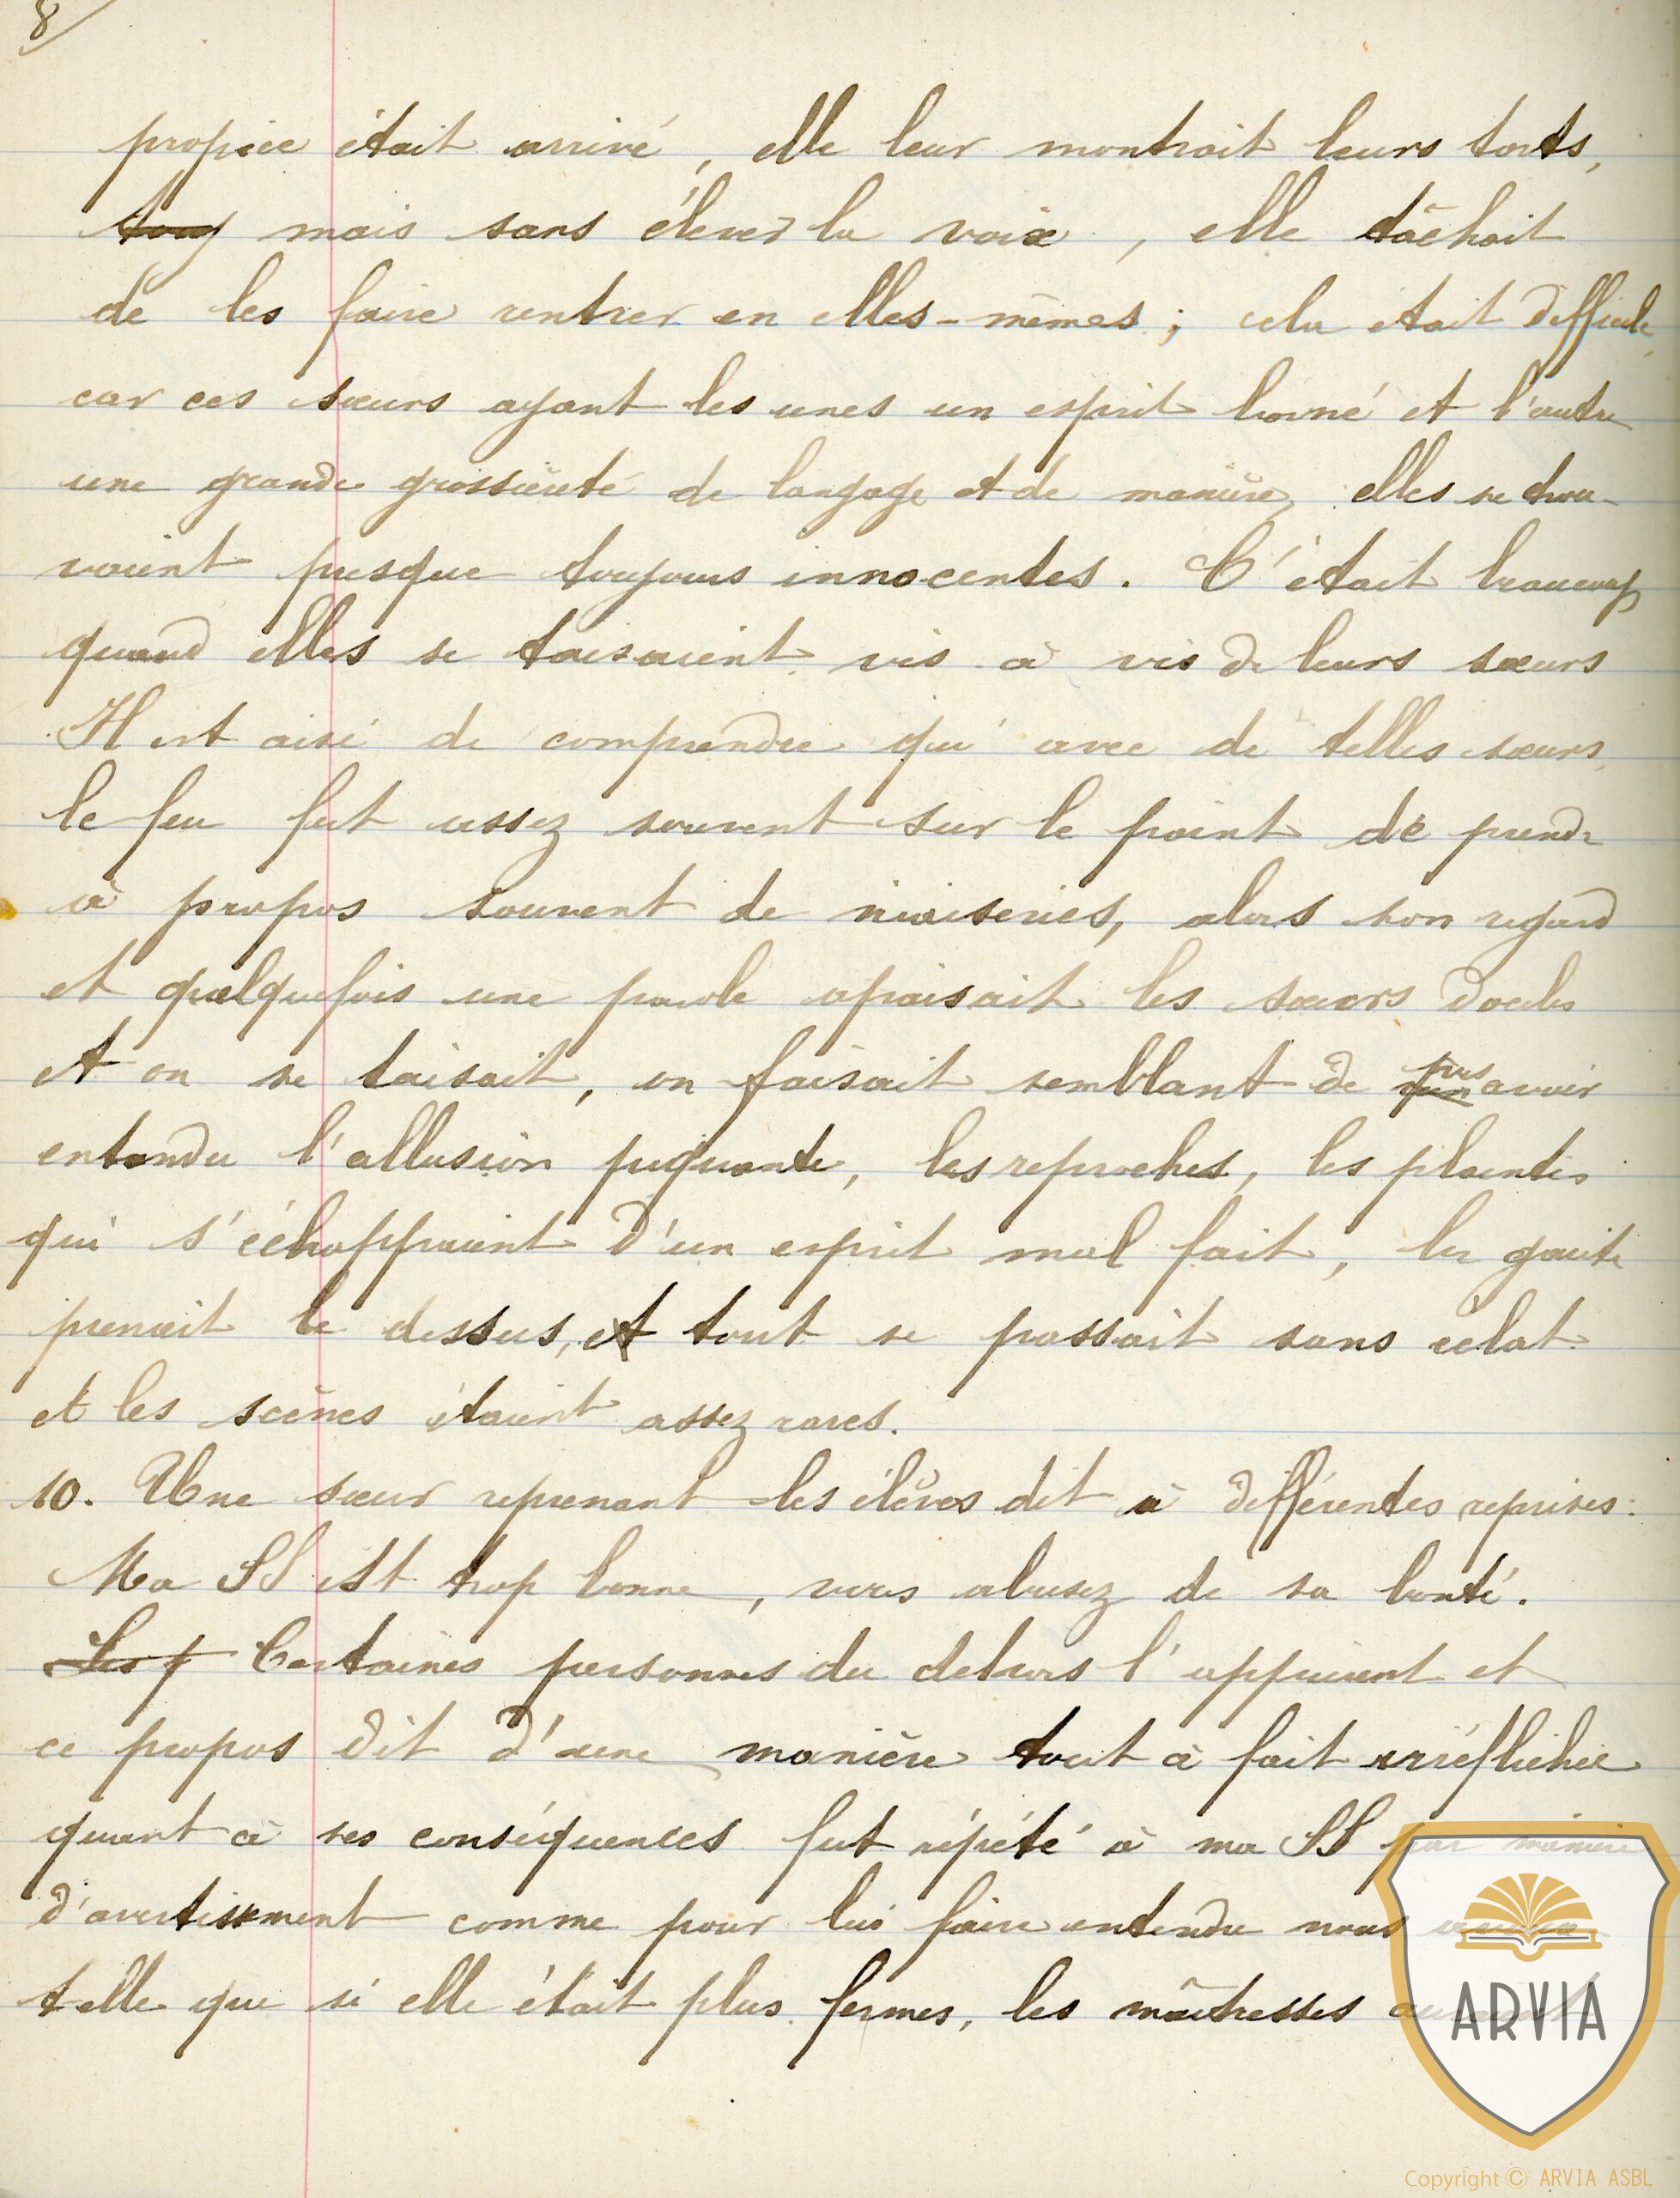 8/
propice était arrivé, elle leur montrait leurs torts,
mais sans élever la voix, elle tâchait
de les faire rentrer en elles-mêmes ; cela etait difficile
car ces sœurs ayant les unes un esprit borné et l'autre
une grande grossièreté de langage et de manière, elles se trou-
vaient presque toujours innocentes. C'était beaucoup
quand elles se taisaient vis à vis de leurs sœurs
Il est aisé de comprendre qu'avec de telles sœurs,
le feu fut assez souvent sur le point de prendre
à propos souvent de niaiseries, alors son regard
et quelquefois une parole apaisait les sœurs dociles
et on se taisait, on faisait semblant de pas avoir
entendu l'allusion piquante, les reproches, les plaintes
qui s'échappaient d'un esprit mal fait, la gaité
prenait le dessus, et tout se passait sans éclat
et les scènes étaient assez rares.
10. Une sœur reprenant les élèves dit à différentes reprises :
Ma SS est trop bonne, vous abusez de sa bonté.
Certaines personnes du dehors l'apprirent et
ce propos dit d'une manière tout à fait irréfléchie
quant à ses conséquences fut répété à ma SS par manière
d'avertissement comme pour lui faire entendre nous
telle que si elle était plus fermes, les maîtresses
ARVIA
Copyright © ARVIA ASBL